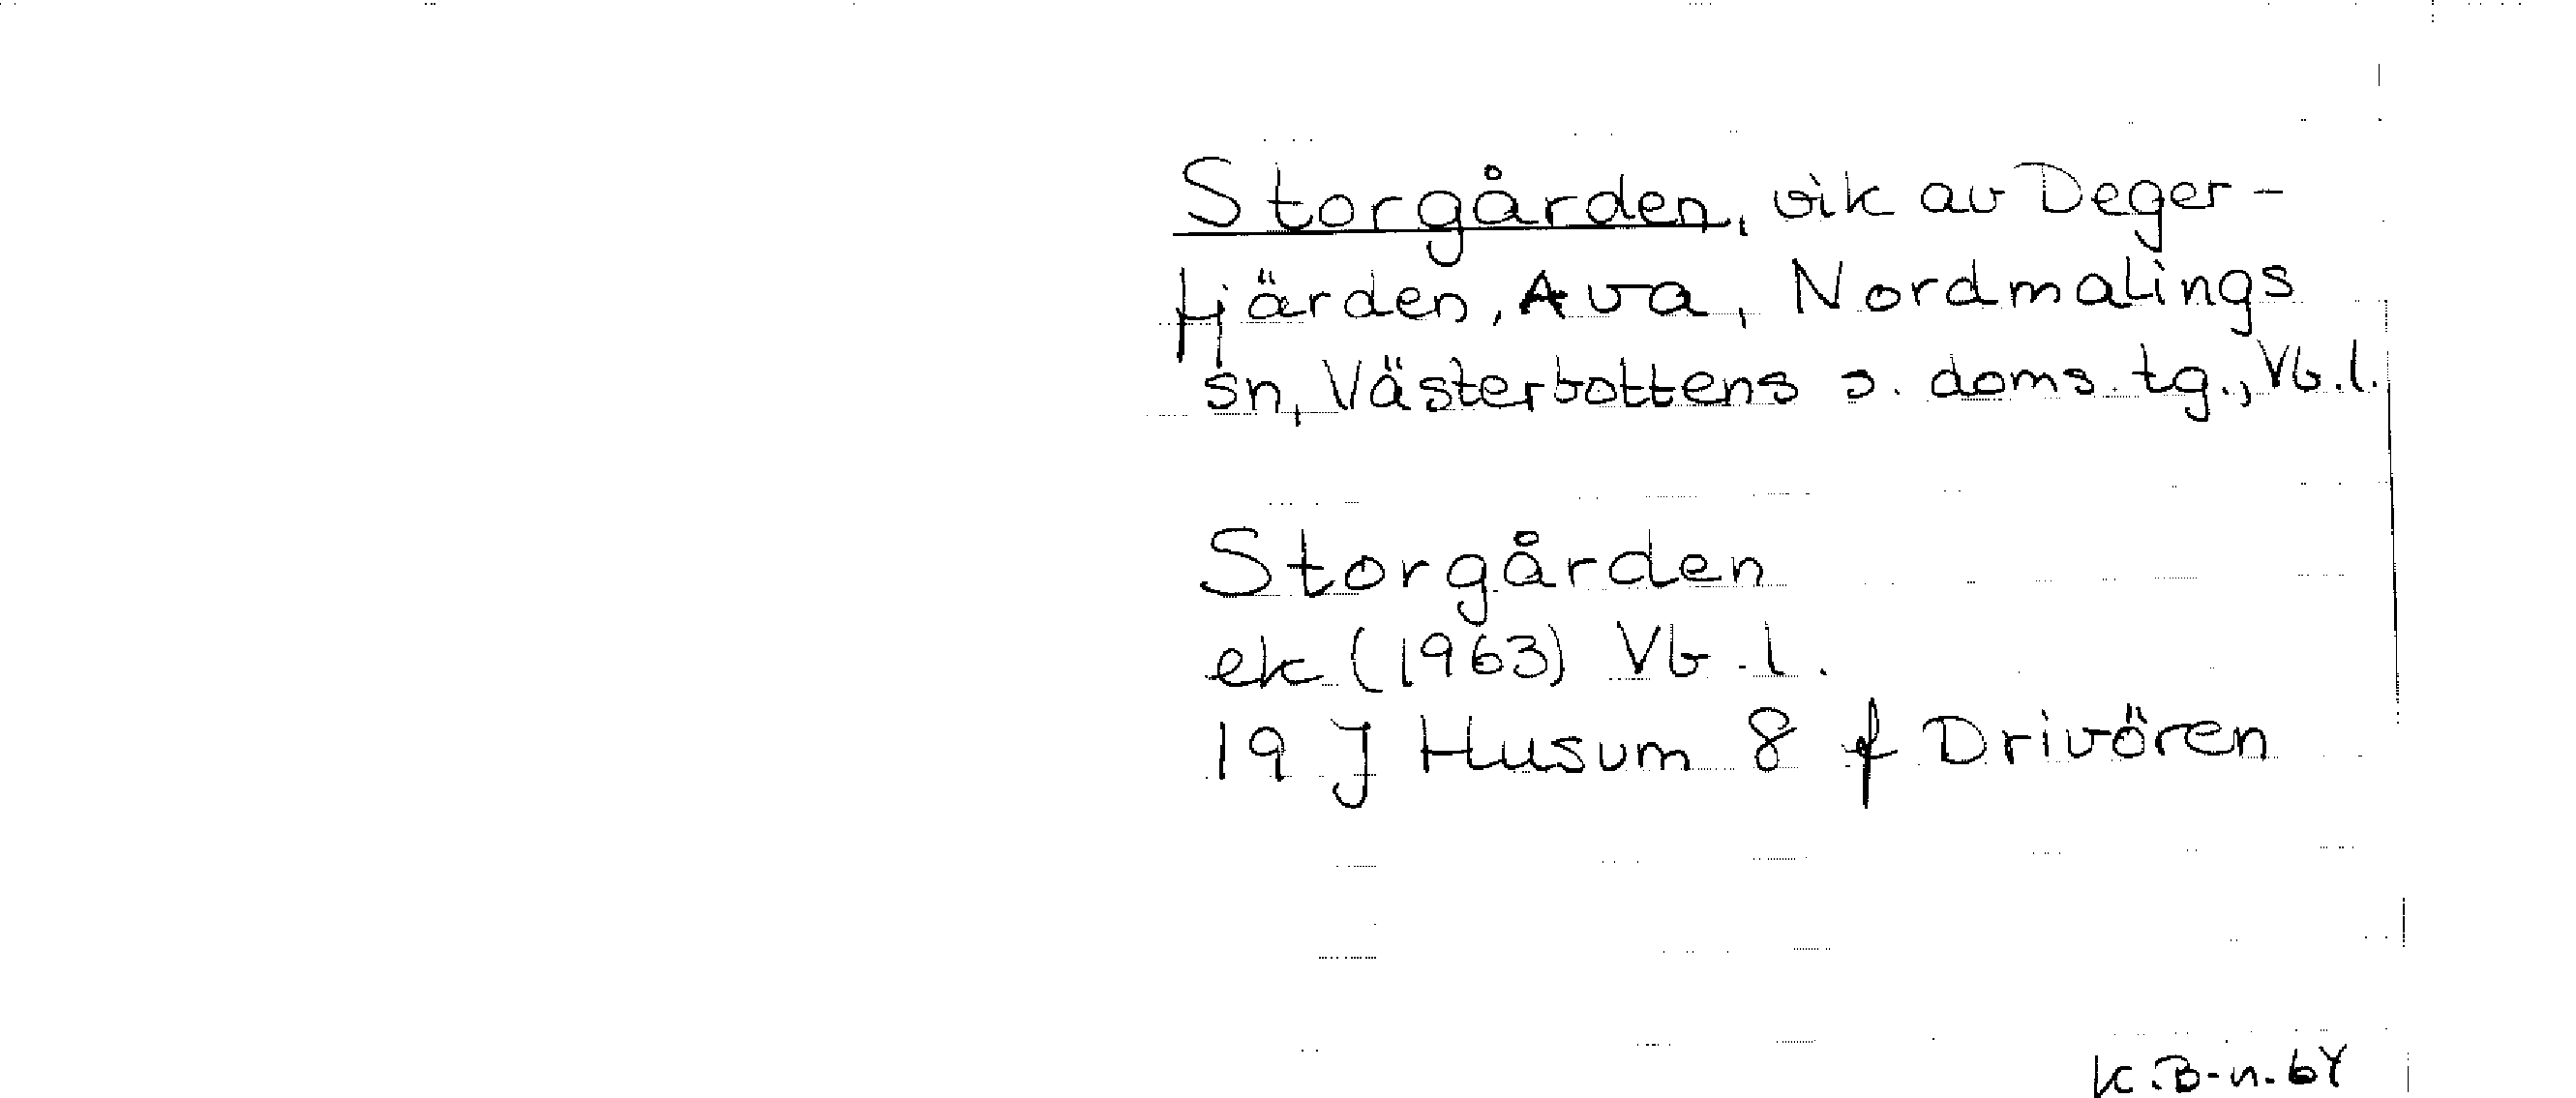 Storgården, vik av Deger-
fjärden, Ava, Nordmalings
sn, Västerbottens s. doms. tg., Vb. l.
Storgården
ek (1963) Vb. l.
19 J Husum 8 f Drivören
K.B-n. 64